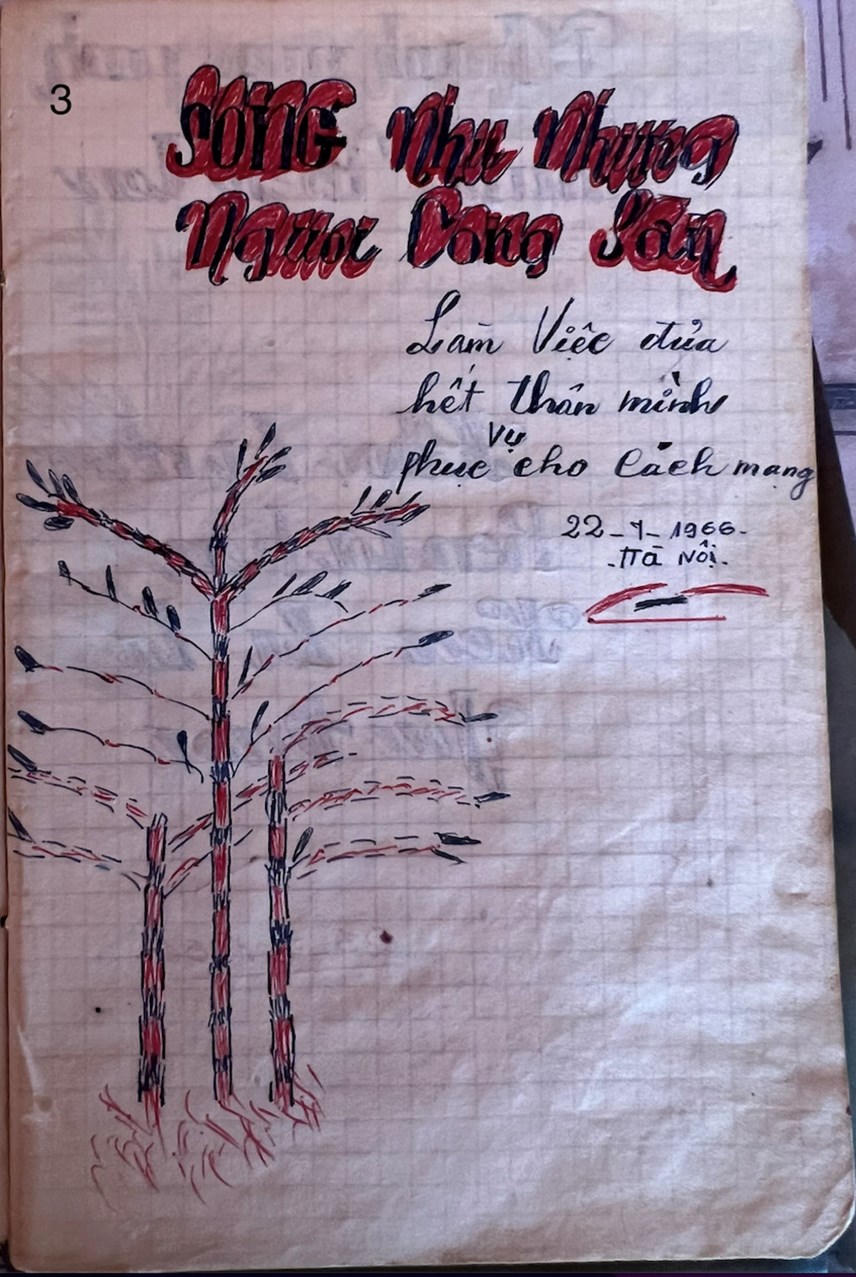 3
SỐNG Như Những
Người Cộng Sản
Làm Việc đưa
hết thân mình
phục vụ cho Cách mạng
22-7-1966-
.Hà Nội.